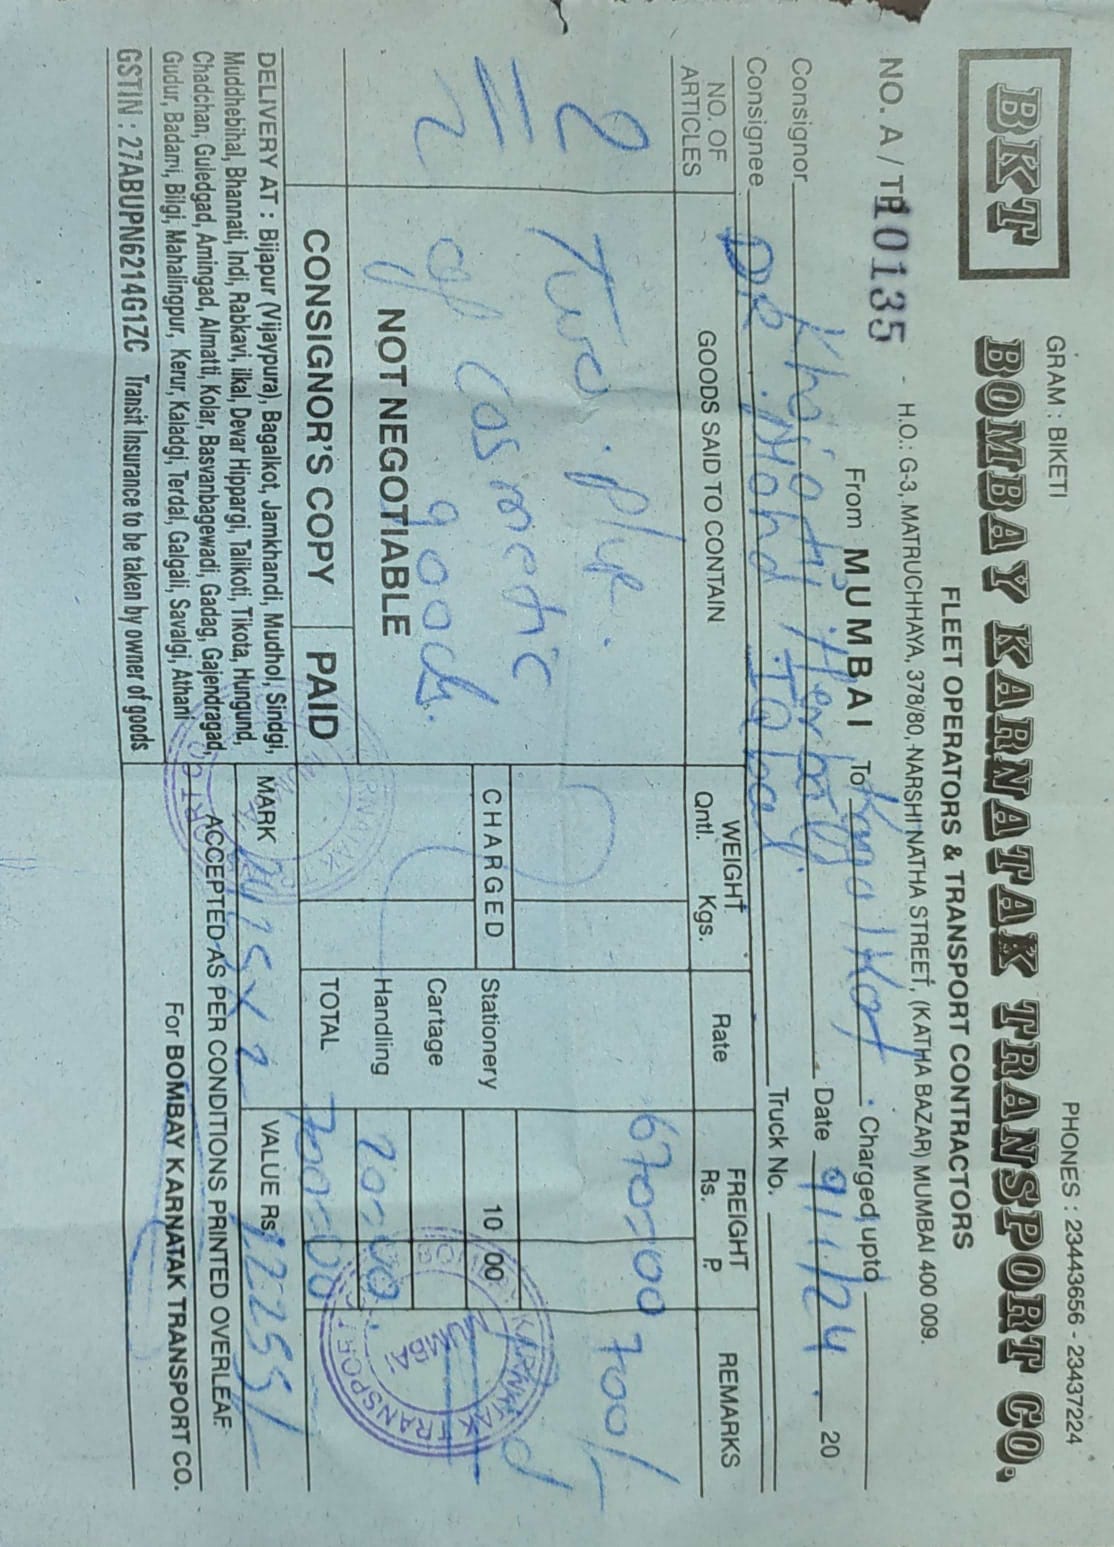 GRAM : BIKETI
PHONES : 23443656 - 23437224
BKT
BOMBAY KARNATAK TRANSPORT CO.
FLEET OPERATORS & TRANSPORT CONTRACTORS
H.O.: G-3, MATRUCHHAYA, 378/80, NARSHI NATHA STREET, (KATHA BAZAR) MUMBAI 400 009.
NO. A / TP 10135
From MUMBAI To Bagalkot Charged upto
Consignor Khojati Herbal Date 9/1/24 20
Consignee DR. Mohd Iqbal Truck No.
NO. OF ARTICLES
GOODS SAID TO CONTAIN
WEIGHT Qntl. Kgs.
Rate
FREIGHT Rs. P.
REMARKS
2
Two. plye.
670=00
700/-
2 of Cosmetic
goods.
CHARGED
Stationery 10 00
Cartage
NOT NEGOTIABLE
Handling 20=00
CONSIGNOR'S COPY PAID
TOTAL 700=00
DELIVERY AT : Bijapur (Vijaypura), Bagalkot, Jamkhandi, Mudhol, Sindgi,
Muddhebihal, Bhannati, Indi, Rabkavi, ilkal, Devar Hippargi, Talikoti, Tikota, Hungund,
Chadchan, Guledgad, Amingad, Almatti, Kolar, Basvanbagewadi, Gadag, Gajendragad,
Gudur, Badami, Bilgi, Mahalingpur, Kerur, Kaladgi, Terdal, Galgali, Savalgi, Athani
MARK
VALUE Rs. 92255/-
ACCEPTED AS PER CONDITIONS PRINTED OVERLEAF
For BOMBAY KARNATAK TRANSPORT CO.
GSTIN : 27ABUPN6214G1ZC Transit Insurance to be taken by owner of goods